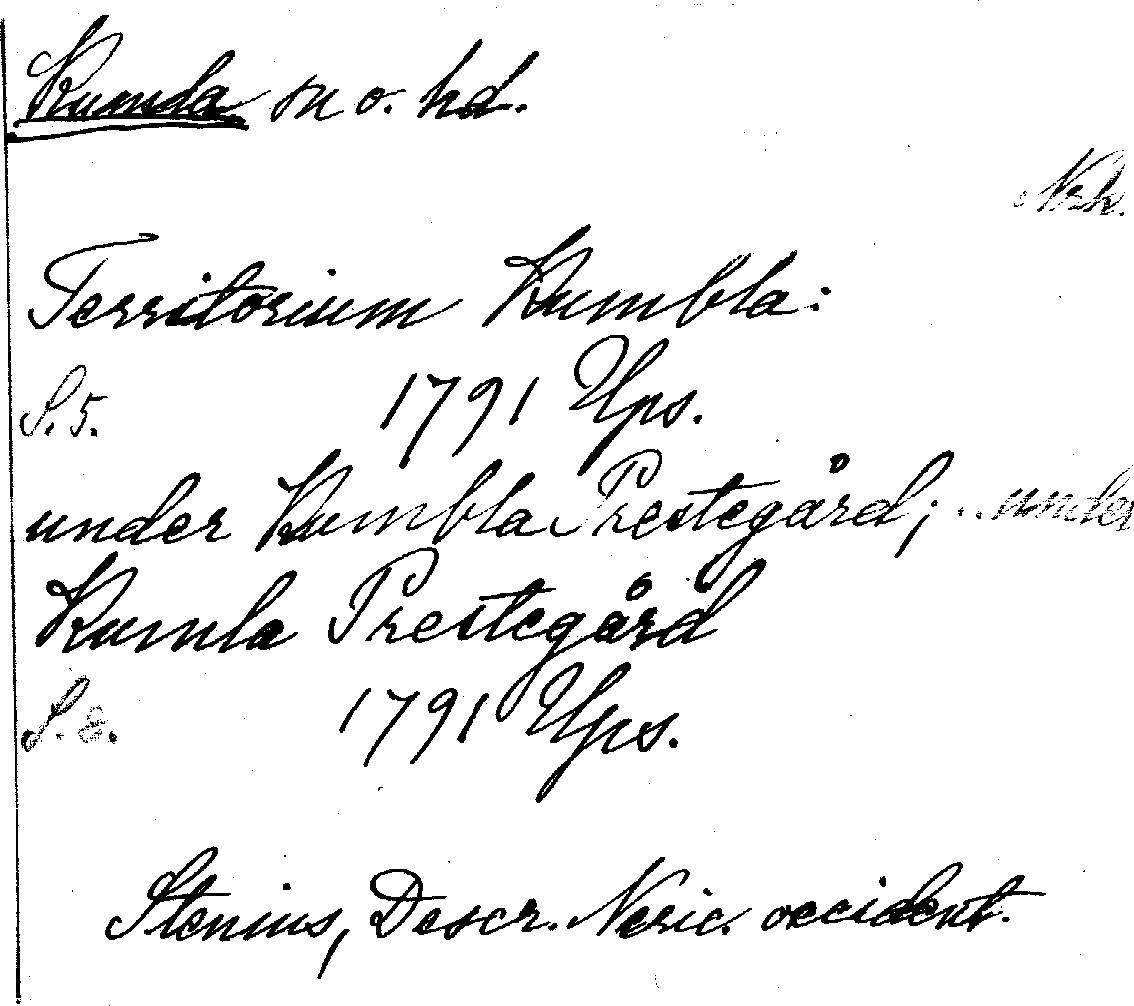 Kumla sn o. hd.
Nrk.
Territorium Kumbla:
S. 5. 1791 Ups.
under Kumbla Prestegård; .. under
Kumla Prestegård
S. 8. 1791 Ups.
Stenius, Descr. Neric. occident.